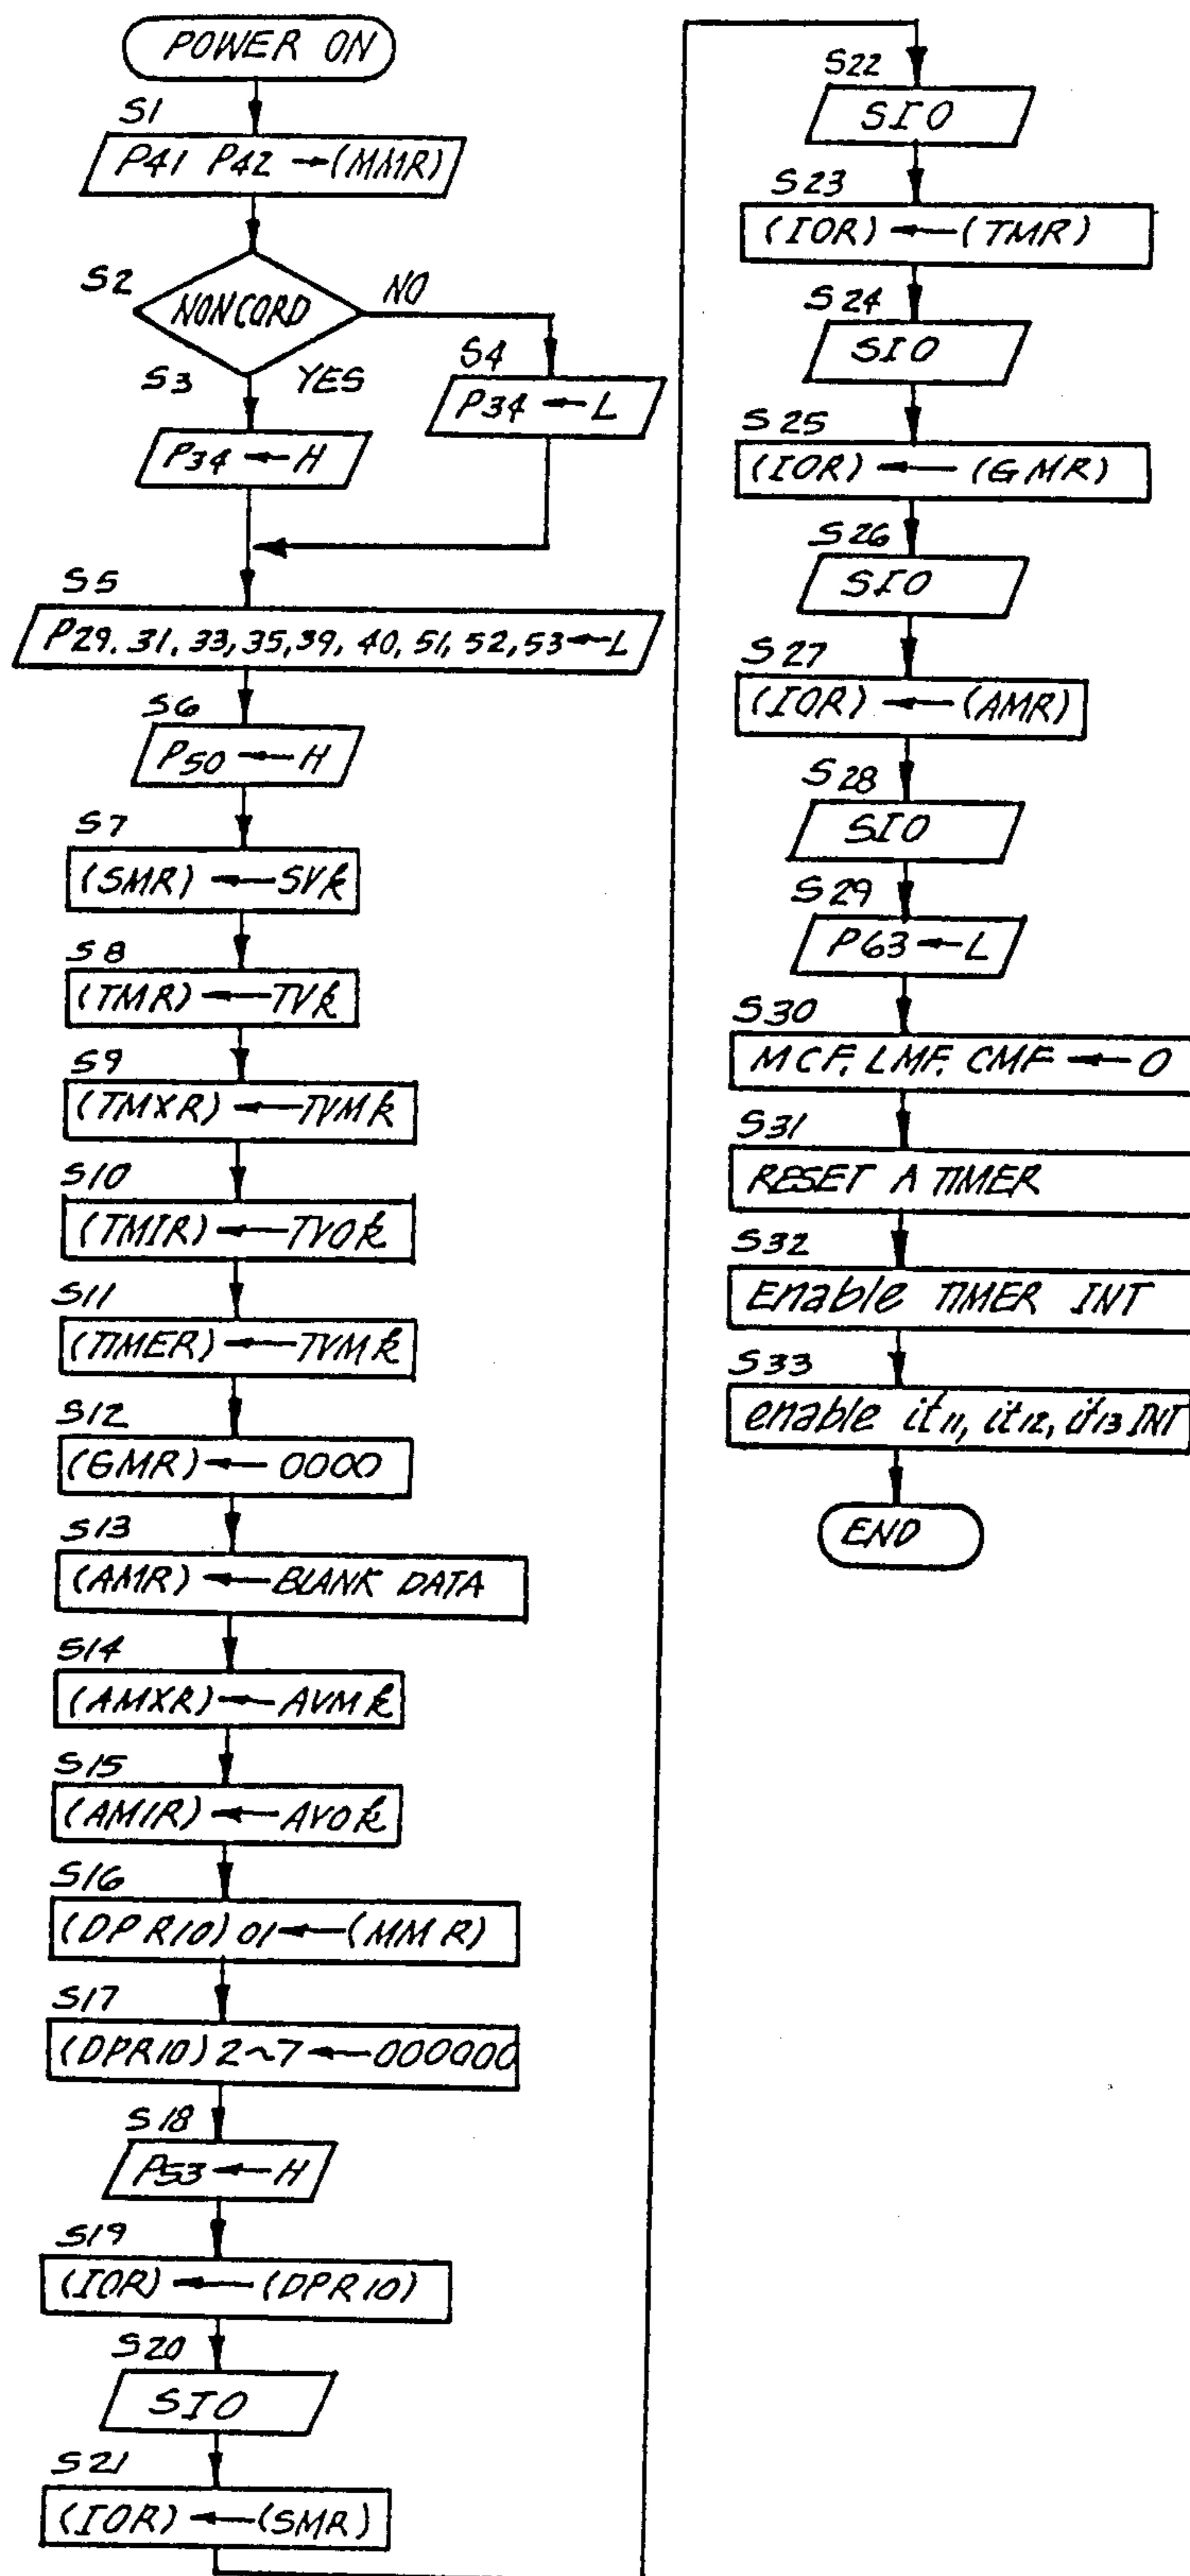 POWER ON
S1
P41 P42 → (MMR)
S2
NONCORD
NO
S3
YES
S4
P34 ← L
P34 ← H
S5
P29, 31, 33, 35, 39, 40, 51, 52, 53 ← L
S6
P50 ← H
S7
(SMR) ← SVk
S8
(TMR) ← TVk
S9
(TMXR) ← TVMk
S10
(TMIR) ← TVOk
S11
(TIMER) ← TVMk
S12
(GMR) ← 0000
S13
(AMR) ← BLANK DATA
S14
(AMXR) ← AVMk
S15
(AMIR) ← AVOk
S16
(DPR10) 01 ← (MMR)
S17
(DPR10) 2~7 ← 000000
S18
P53 ← H
S19
(IOR) ← (DPR10)
S20
SIO
S21
(IOR) ← (SMR)
S22
SIO
S23
(IOR) ← (TMR)
S24
SIO
S25
(IOR) ← (GMR)
S26
SIO
S27
(IOR) ← (AMR)
S28
SIO
S29
P63 ← L
S30
MCF, LMF, CMF ← 0
S31
RESET A TIMER
S32
Enable TIMER INT
S33
enable it11, it12, it13 INT
END